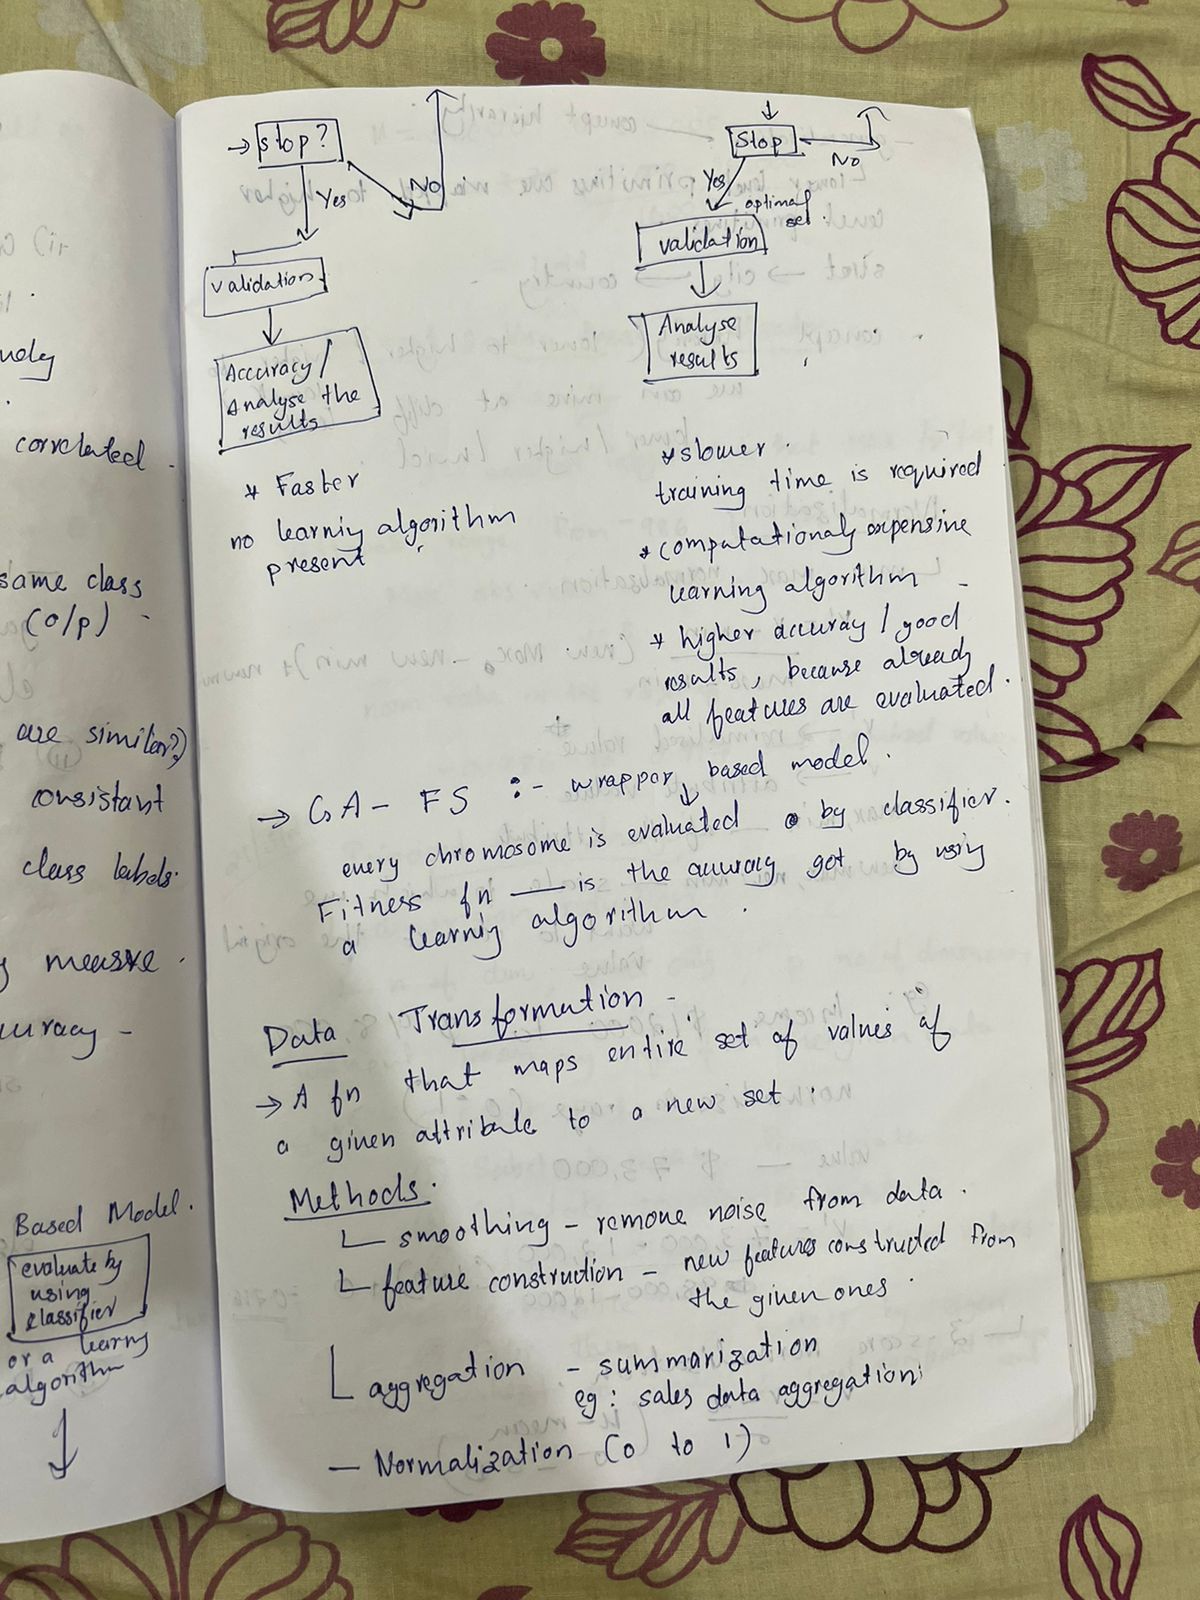 ndy
correlated.
same class
(o/p)
are similar?)
consistant
class labels.
measre.
uracy -
Based Model.
evaluate by
using
classifier
or a learng
algorithm
→ stop?
No
Yes
validation
Accuracy /
Analyse the
results
* Faster
no learniy algorithm
present
Stop
No
Yes
optimal
set.
validation
Analyse
results
* slower.
training time is required
* computationaly expensive
learning algorithm -
* higher accuracy / good
results, because already
all features are evaluated.
→ GA - FS :- wrapper based model.
every chromosome is evaluated by classifier.
Fitness fn — is the accuracy got by using
a learniy algorithm.
Data Transformation -
→ A fn that maps entire set of values of
a given attribute to a new set.
Methods.
smoothing - remove noise from data.
feature construction - new features constructed from
the given ones.
aggregation - summarization
eg: sales data aggregation;
- Normalization (0 to 1)